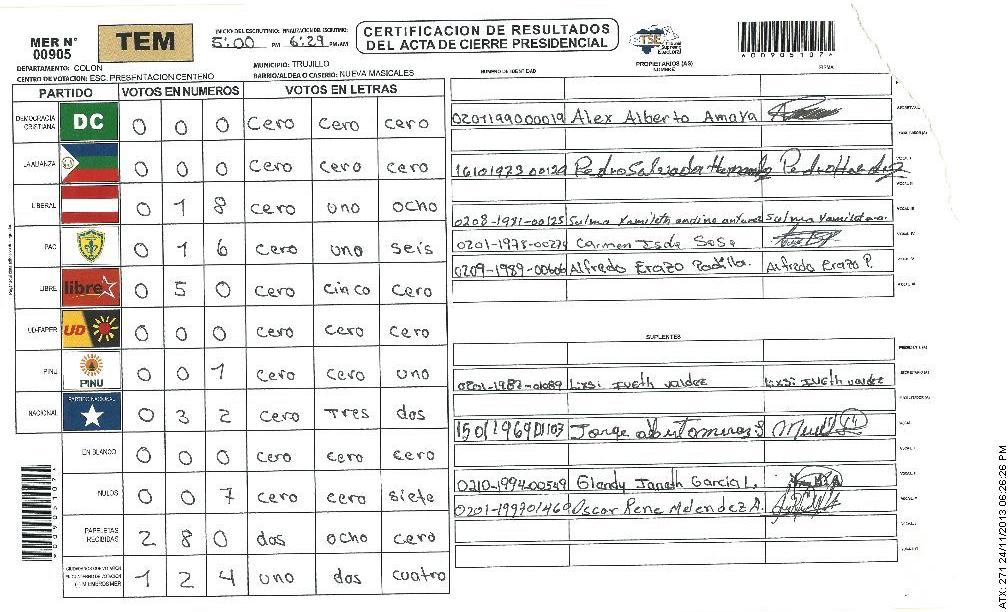 MER N°
00905
TEM
INICIO DEL ESCRUTINIO: FINALIZACION DEL ESCRUTINIO:
5:00 PM 6:29 PM-AM
CERTIFICACION DE RESULTADOS
DEL ACTA DE CIERRE PRESIDENCIAL
TSE
*00905107*
DEPARTAMENTO: COLON
MUNICIPIO: TRUJILLO
CENTRO DE VOTACION: ESC. PRESENTACION CENTENO
BARRIO/ALDEA O CASERIO: NUEVA MASICALES
PROPIETARIOS (AS)
NUMERO DE IDENTIDAD NOMBRE FIRMA
PARTIDO VOTOS EN NUMEROS VOTOS EN LETRAS
DEMOCRACIA CRISTIANA DC 0 0 0 Cero Cero cero
LA ALIANZA 0 0 0 Cero Cero cero
LIBERAL 0 1 8 Cero uno ocho
PAC 0 1 6 Cero uno seis
LIBRE libre 0 5 0 Cero Cinco Cero
UD-FAPER UD 0 0 0 Cero Cero Cero
PINU PINU 0 0 1 Cero Cero uno
NACIONAL PARTIDO NACIONAL 0 3 2 Cero Tres dos
EN BLANCO 0 0 0 Cero Cero cero
NULOS 0 0 7 Cero cero siete
PAPELETAS RECIBIDAS 2 8 0 dos ocho cero
1 2 4 uno dos cuatro
0201199000019 Alex Alberto Amaya
Pedro Salvador Hernandez
0208-1981-00125 Sulma Yamileth
0201-1978-00274 Carmen Isde Sosa
Alfredo Erazo Padilla. Alfredo Erazo P.
SUPLENTES
0201-1987-01089 Lixsi Iveth valdez Lixsi Iveth valdez
Jorge
0210-1994-00549 Glendy Janeth Garcia L.
Oscar Rene Melendez A.
*00905107*
ATX: 271 24/11/2013 06:26:26 PM